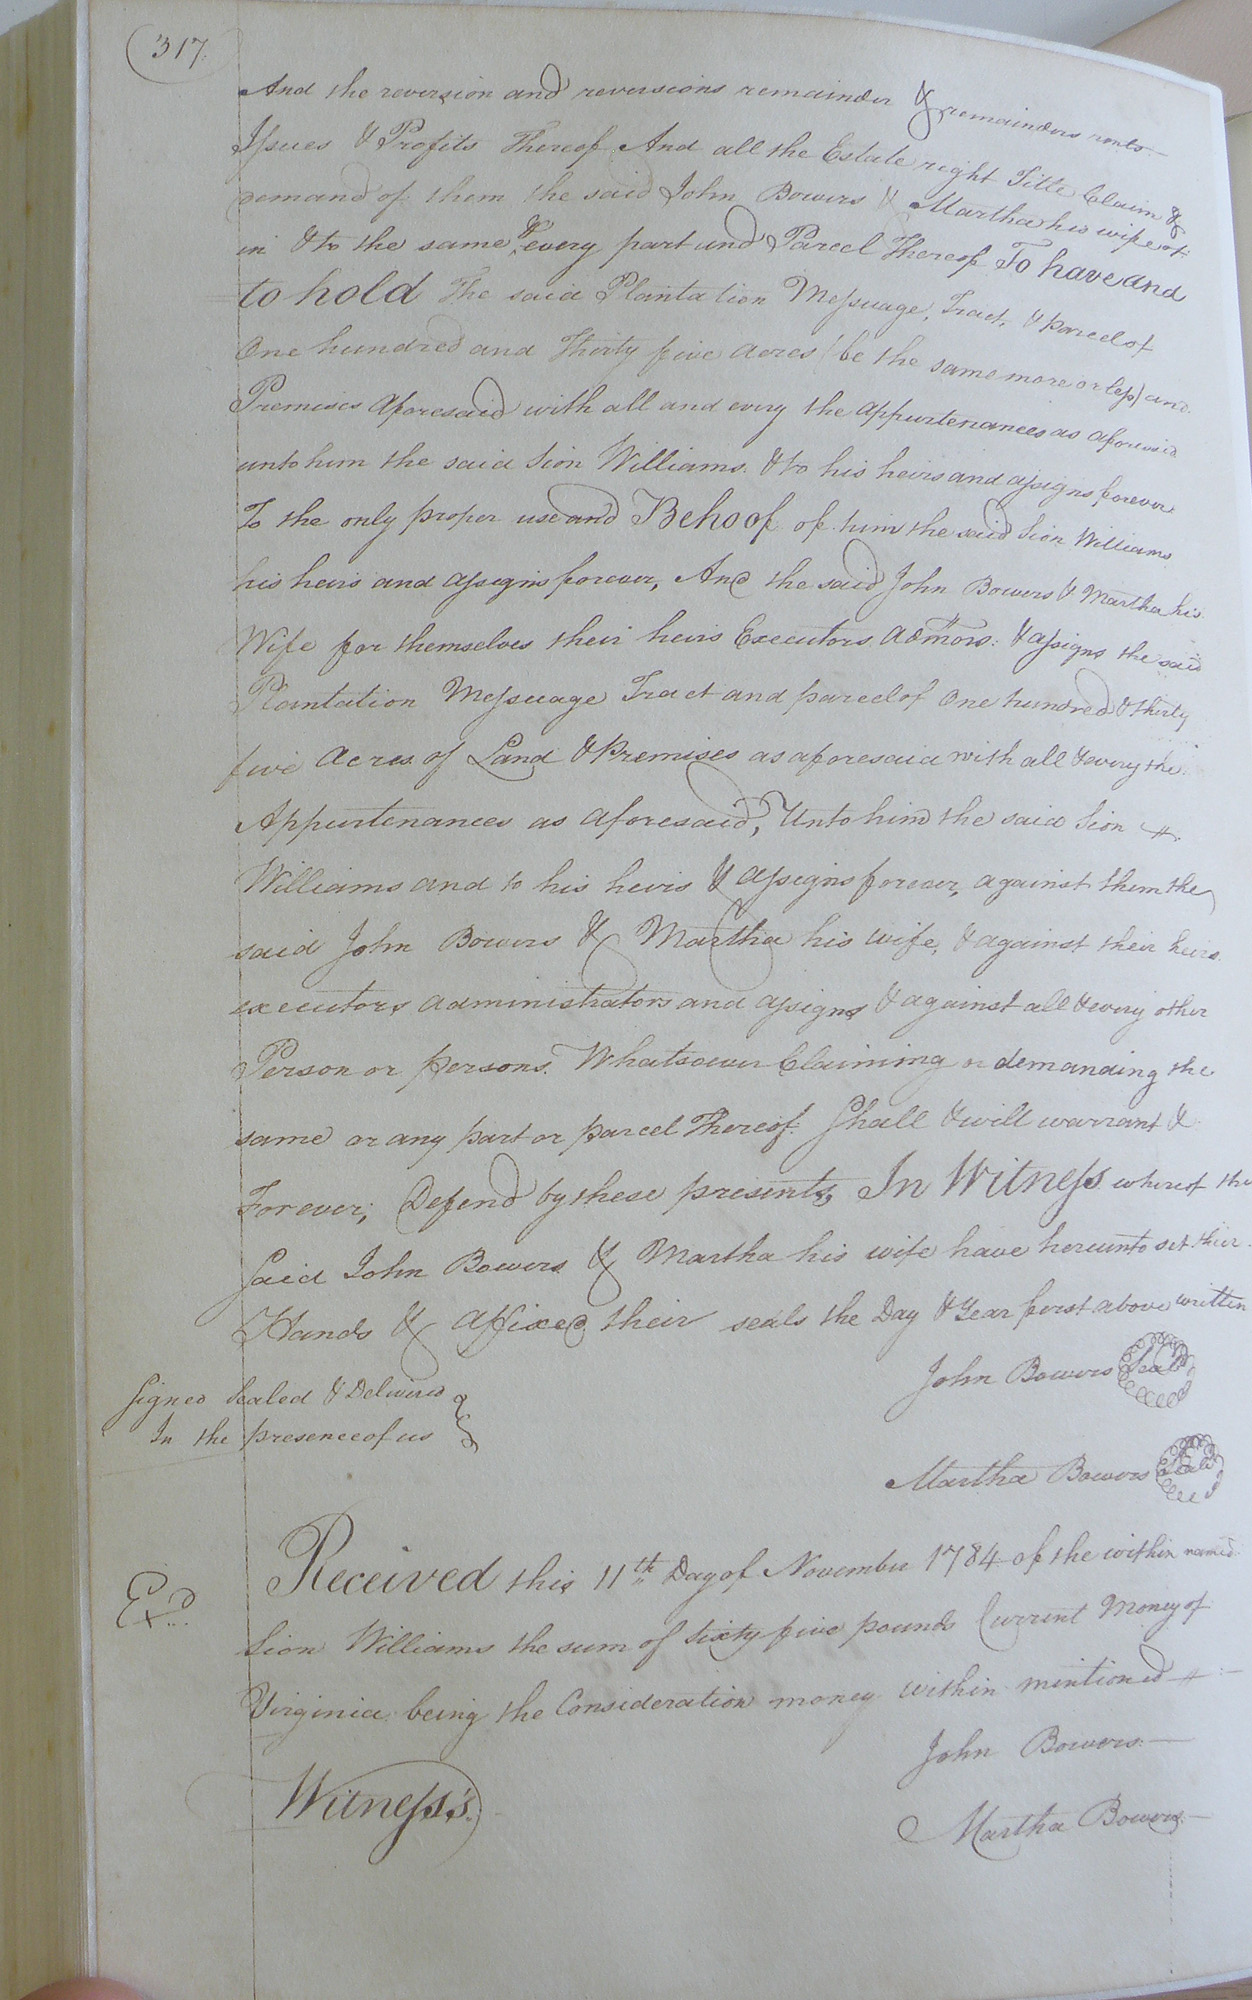 317.
And the reversion and reversions remainder & remainders rents
Issues & Profits Thereof And all the Estate right Title Claim &
demand of them the said John Bowers & Martha his wife of
in & to the same & every part and Parcel Thereof To have and
to hold The said Plantation Messuage, Tract, & parcel of
One hundred and Thirty five Acres (be the same more or less) and
Premises Aforesaid with all and every the Appurtenances as aforesaid
unto him the said Sion Williams. & to his heirs and assigns forever
To the only proper use and Behoof of him the said Sion Williams
his heirs and assigns forever, And the said John Bowers & Martha his
Wife for themselves their heirs Executors Admors: & assigns the said
Plantation Messuage Tract and parcel of One hundred & thirty
five Acres of Land & Premises as aforesaid with all & every the
Appurtenances as aforesaid, Unto him the said Sion
Williams and to his heirs & assigns forever, against them the
said John Bowers & Martha his wife, & against their heirs
executors administrators and assigns & against all & every other
Person or persons. Whatsoever Claiming or demanding the
same or any part or parcel Thereof. Shall & will warrant &
Forever, Defend by these presents, In Witness whereof the
said John Bowers & Martha his wife have hereunto set their
Hands & Affixed their seals the Day & Year first above written
John Bowers Seal
Signed Sealed & Delivered
In the presence of us
Martha Bowers Seal
Received this 11th Day of November 1784 of the within named
Exd.
Sion Williams the sum of Sixty five pounds Current Money of
Virginia being the Consideration money within mentioned
John Bowers.
Witness's.
Martha Bowers.